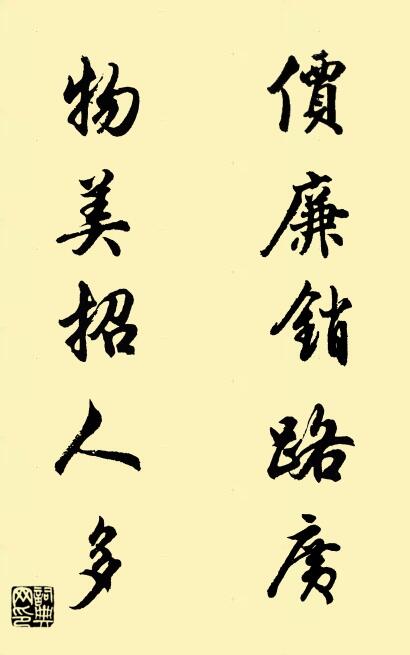 價廉銷路廣
物美招人多
詞典网印